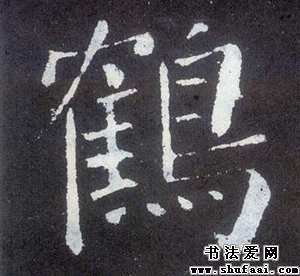 鶴
书法爱网
www.shufaai.com